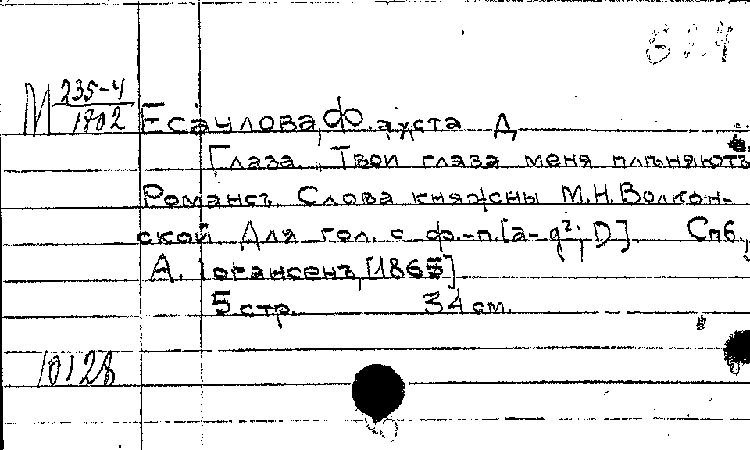 624
М 235-4
1802
Есаулова, Ф. густа Д
Глаза. Твои глаза меня плѣняютъ.
Романсъ. Слова княжны М.Н.Волкон-
ской Для гол. с ф.-п.[a-g²; D]. Спб.,
А. Іогансенъ, [1865].
5 стр. 34 см.
10128